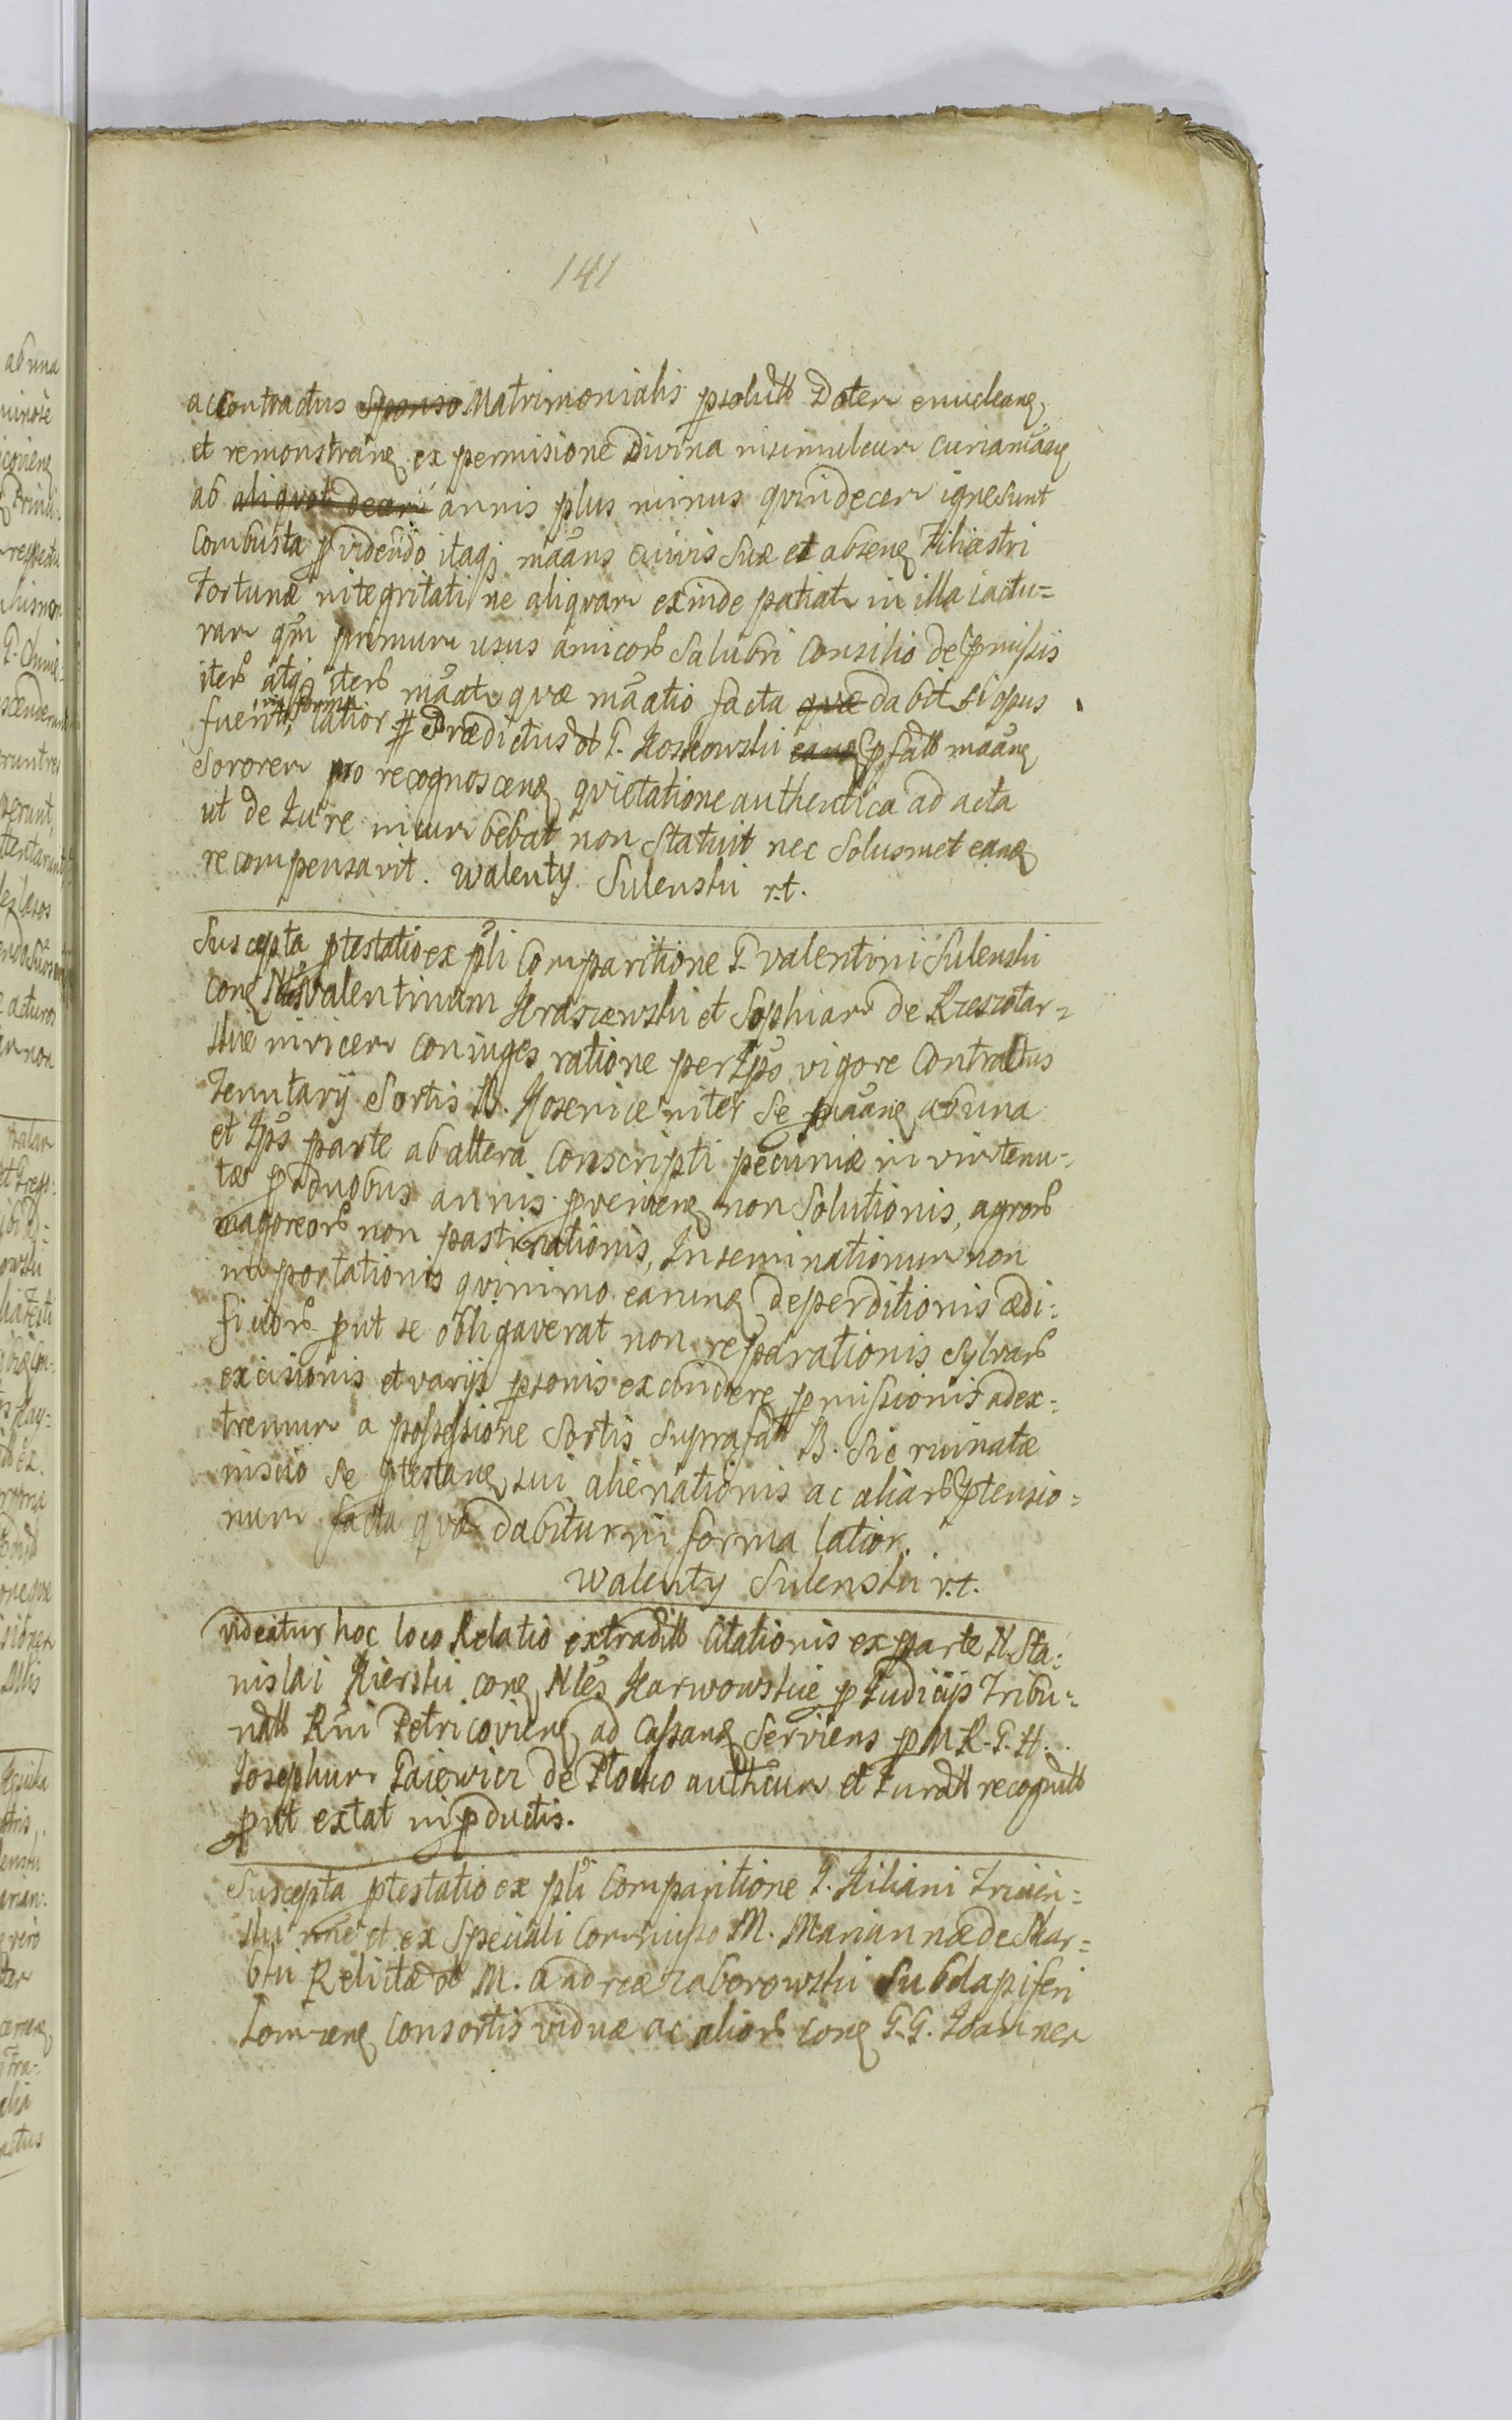 141
ac Contractus Sponso Matrimonialis psolutt Dotem enucleanę
et remonstranę ex permisione Divina insimulcum curiamãnę
ab aliquot decem annis plus minus qvindecem igne sunt
Combusta pvidendo itaqȝ mãans cuivis suæ et absenę Filiastri
Fortunæ integritati ne aliqvam exinde patiatr in illa iactu=
ram qm primum usus amicorb salubri Consilio de pmissis
iterb atqȝ iterb mãatr qvæ mãatio facta quæ dabit si opus
fuerit, in forma latior # Prædictus ol G. Koskowski eanę pfatt mãanę
Sororem pro recognoscenę qvietatione authentica ad acta
ut de Jure incumbebat non Statuit nec Solusmet eanę
recompensavit. Walenty Sulenski r.t.
Suscepta ptestatio ex pli Comparitione G. Valentini Sulenski
conę Nles Valentinum Kraszewski et Sophiam de Rzeszotar=
skie invicem coniuges ratione per Ipõs vigore Contractus
Tenutarÿ Sortis B. inter se mãanę ab una
et Ipõs parte ab altera Conscripti pecuniæ in vim tenu=
tæ p duobus annis pvenienę non Solutionis, agrorb
eagoreorb non pastinationis, Inseminationum non
importationis qvinimo earunę deperditionis ædi=
ficiorb put se obligaverat non reparationis Sylvarb
excisionis et varijs psonis excindere pmissionis ad ex=
tremum a possessione Sortis Suprafatt B. Sic ruinatæ
inscio se ptestanę sui alienationis ac aliarb ptensio=
num facta qvæ dabitur in forma latior.
Walenty Sulenski r.t.
Videatur hoc loco Relatio extraditt Citationis ex parte N. Sta=
nislai Kierski conę Nles Karwowskie p Judicijs Tribu=
natt Rni Petricovienę ad Cassanę Serviens p M.R. G. H.
Josephum Gaiewicz de Plocko authcum et Juratt recognitt
put extat in pductis.
Suscepta ptestatio ex pli Comparitione G. Kiliani
noie et ex Speciali Commisso M. Mariannæ de Skar=
bki Relictæ ol M. Andreæ Zaborowski Subdapiferi
Consortis viduæ ac aliorb conę G.G. Joannem